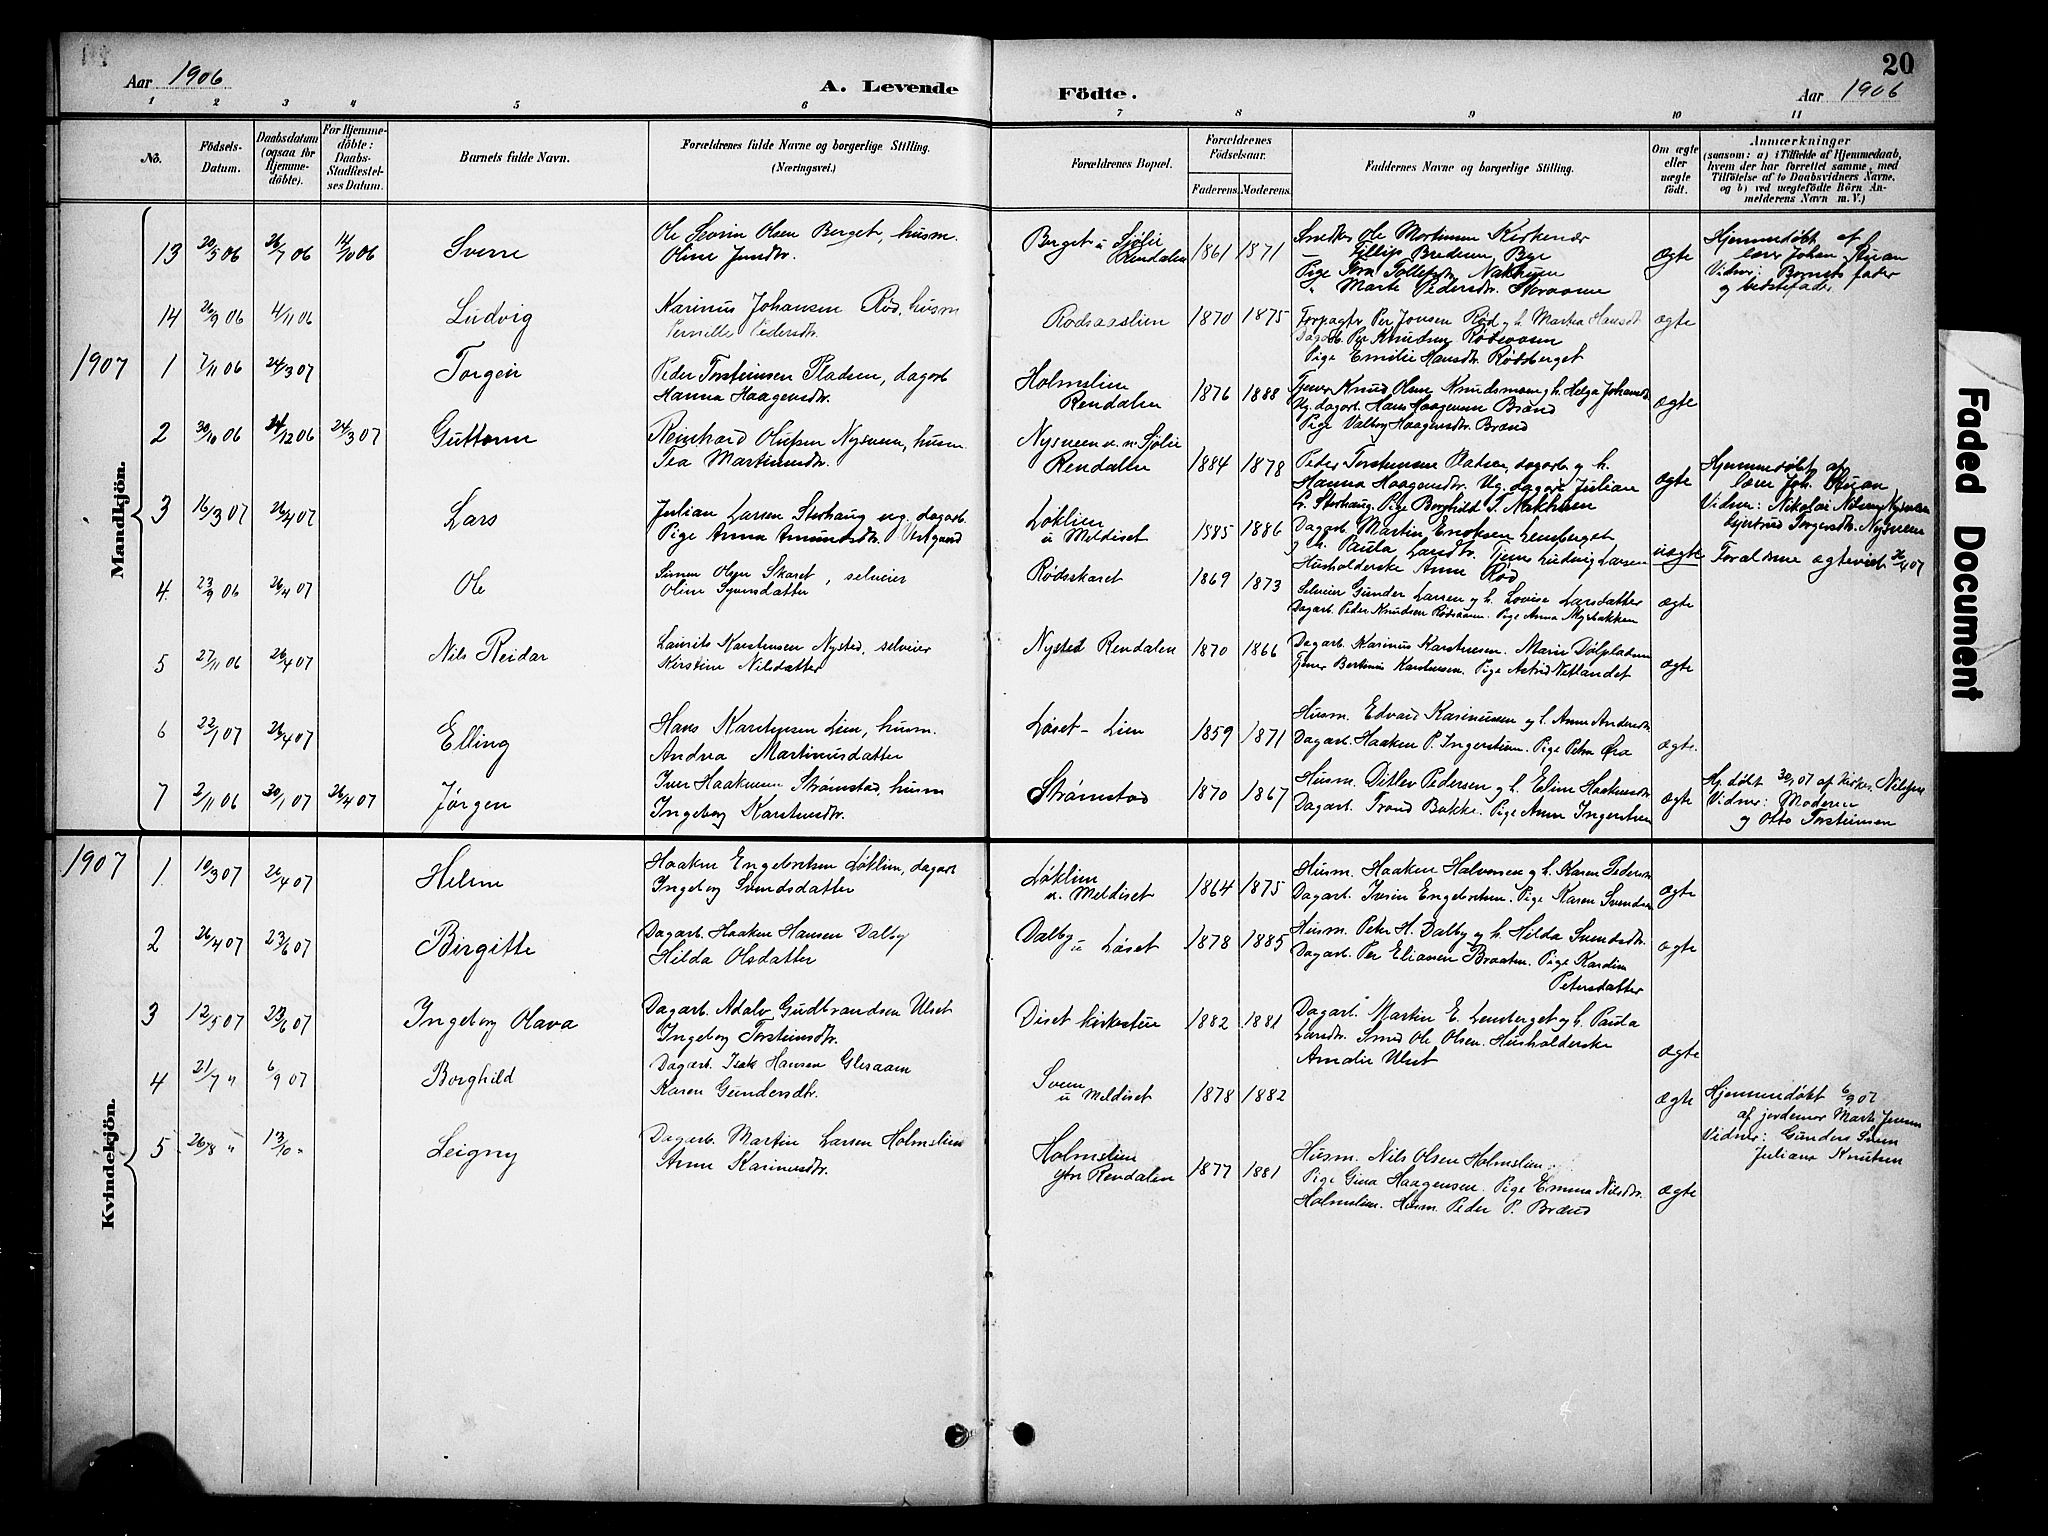 Aar 1906
A. Levende
Födte.
20
Aar 1906
1 2 3 4 5 6 7 8 9 10 11
No.
Födsels-
Datum.
Daabsdatum
(ogsaa for
Hjemme-
döbte).
For Hjemme-
döbte:
Daabs-
Stadfæstel-
ses Datum.
Barnets fulde Navn.
Forældrenes fulde Navne og borgerlige Stilling.
(Næringsvei.)
Forældrenes Bopæl.
Forældrenes
Födselsaar.
Faderens. Moderens.
Faddernes Navne og borgerlige Stilling.
Om ægte
eller
uægte
födt.
Anmærkninger
(saasom: a) i Tilfælde af Hjemmedaab,
hvem der har forrettet samme, med
Tilföielse af to Daabsvidners Navne,
og b) ved uægtefödte Börn An-
melderens Navn m. V.)
Mandkjön.
13 30/5 06 26/7 06 14/10 06 Sverre
Ole Severin Olsen Berget, husm.
Oline Jensdtr.
Berget u Sjølie
Rendalen
1861 1871
Snedker Ole Mortinsen Kirkenær
Pige Tollefsdtr. Nakhuen
" Marte Pedersdtr.
ægte
Hjemmedøbt af
lærer Johan Stuan
Vidner: Barnets fader
og bedstefader
14 26/9 06 4/11 06 Ludvig
Karinus Johansen Rød, husm
Pernille Pedersdtr.
Rødsaaslien
1870 1875
Forpagter Per Jonsen Rød og h. Martia Hansdtr
Dagarb. Per Knudsen Rødsaasen
Pige Emilie Hansdtr. Rødsberget
ægte
1907
1 7/11 06 24/3 07 Torgeir
Peder Torsteinsen Pladsen, dagarb
Hanna Haagensdtr.
Holmslien
Rendalen
1876 1888
Tjener Knud Olsen Knudsmoen og h. Helga Johansdtr
Ug. dagarb. Hans Haagensen Brænd
Pige Valborg Haagensdtr. Brænd
ægte
2 30/10 06 24/12 06 24/3 07 Guttorm
Reinhard Olufsen Nysveen, husm
Tea Martinusdtr.
Nysveen u. n. Sjølie
Rendalen
1884 1878
Peder Torsteinsen Pladsen, dagarb. og h.
Hanna Haagensdtr. Ug. dagarb Julian
L. Storhaug. Pige Borghild T. Nakhuen
ægte
Hjemmedøbt af
lærer Joh. Stuan
Vidner: Nikolai Nysveen
Gjertrud Torgersdtr. Nysveen
3 16/3 07 26/4 07 Lars
Julian Larsen Storhaug ug. dagarb.
Pige Anna Amundsdtr. Vestgaard
Løklien
u Meldiset
1885 1886
Dagarb. Martin Engelsen Lensberget
og h. Paula Larsdtr. Tjener Ludvig Larsen
Husholderske Anne Rød
uægte
Forældrene ægteviet 26/4 07
4. 23/9 06 26/4 07 Ole
Simen Olsen Skaret, selveier
Oline Syversdatter
Rødsskaret
1869 1873
Selveier Gunder Larsen og h. Lovise Larsdatter
Dagarb. Peder Knudsen Rødsaasen. Pige Anna Myrbakken
ægte
5 27/11 06 26/4 07 Nils Reidar
Laurits Karstensen Nysted, selveier
Kirstine Nilsdatter
Nysted Rendalen
1870 1866
Dagarb. Karinus Karstensen. Marie Dølpladsen
Tjener Bertinus Karstensen. Pige Astrid Nætlandet
ægte
6 22/1 07 26/4 07 Elling
Hans Karstensen Lien, husm.
Andrea Martinusdatter
Løset - Lien
1859 1871
Husm. Edvard Karinusen og h. Anne Andersdtr
Dagarb. Haaken P. Ingerstuen. Pige Petra Øra
ægte.
7 2/11 06 30/1 07 26/4 07 Jørgen
Iver Haakensen Strømstad, husm
Ingeborg Karstensdtr.
Strømstad
1870 1867
Husm. Ditlev Pedersen og h. Eline Haakensdtr
Dagarb. Trond Bakke. Pige Anna Ingerstuen
ægte
Hj. døbt 30/1 07 af kirkes. Nilssen
Vidner: Moderen
og Otto Torsteinsen
Kvindekjön.
1907
1. 10/3 07 26/4 07 Helene
Haaken Engebretsen Løklien, dagarb
Ingeborg Svendsdatter
Løklien
u. Meldiset
1864 1875
Husm. Haaken Halvorsen og h. Karen Pedersen
Dagarb. Iver Engebretsen. Pige Karen Svendsen
ægte
2 26/4 07 23/6 07 Birgitte
Dagarb. Haaken Hansen Dalby
Hilda Olsdatter
Dalby u Løset
1878 1885
Husm. Peter H. Dalby og h. Hilda Svendsdtr.
Dagarb. Per Eliasen Braaten. Pige Kardine
Petersdatter
ægte
3 12/5 07 23/6 07 Ingeborg Olava
Dagarb. Adolv Gudbrandsen Ulset
Ingeborg Torsteinsdtr.
Diset kirkestuen
1882 1881
Dagarb. Martin E. Lensberget og h. Paula
Larsdtr. Smed Ole Olsen. Husholderske
Amalie Ulset
ægte
4 21/7 " 6/9 07 Borghild
Dagarb. Isak Hansen Glesaaen
Karen Gundersdtr.
Sveen
u Meldiset
1878 1882
ægte
Hjemmedøbt 6/9 07
af jordemor Marte Jensen
Vidner: Gunders Sveen
Juliane Knutsen
5 26/8 " 13/10 " Leigny
Dagarb. Martin Larsen Holmslien
Anne Karinusdtr.
Holmslien
ytre Rendalen
1877 1881
Husm. Nils Olsen Holmslien.
Pige Gina Haagensen. Pige Emma Nilsdtr.
Holmslien. Husm. Peder P. Brænd
ægte
Faded Document